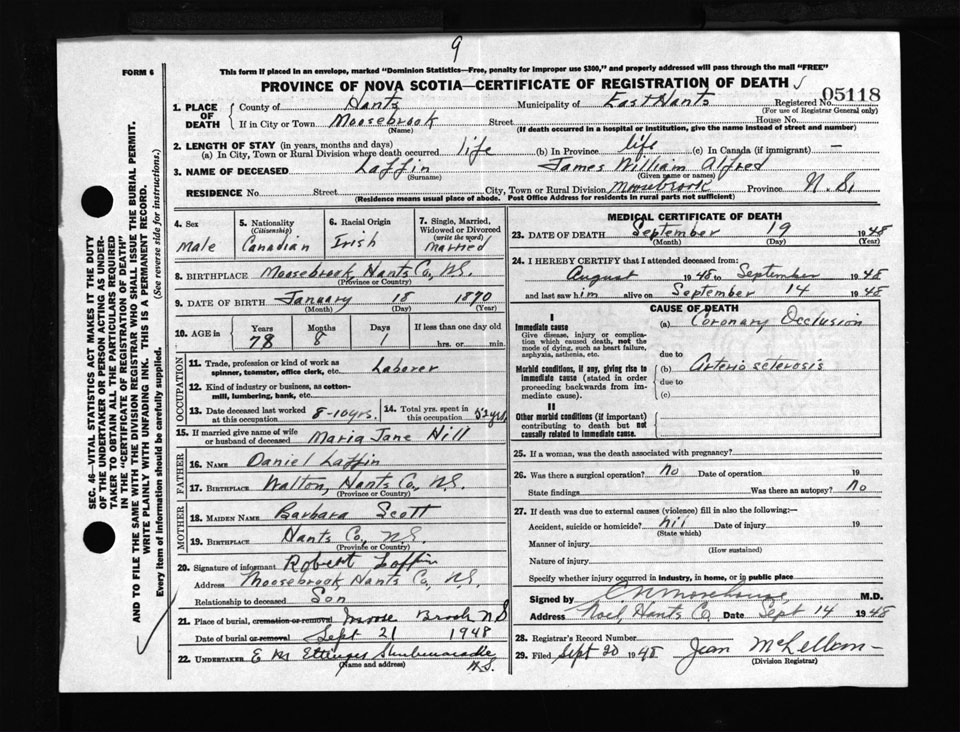 9
FORM 6
This form if placed in an envelope, marked "Dominion Statistics—Free, penalty for improper use $300," and properly addressed will pass through the mail "FREE"
PROVINCE OF NOVA SCOTIA—CERTIFICATE OF REGISTRATION OF DEATH
05118
1. PLACE OF DEATH County of Hants Municipality of East Hants Registered No.
(For use of Registrar General only)
If in City or Town Moosebrook Street House No.
(Name) (If death occurred in a hospital or institution, give the name instead of street and number)
2. LENGTH OF STAY (in years, months and days)
(a) In City, Town or Rural Division where death occurred life (b) In Province life (c) In Canada (if immigrant) —
3. NAME OF DECEASED Laffin James William Alfred
(Surname) (Given name or names)
RESIDENCE No. Street City, Town or Rural Division Moosebrook Province N.S.
(Residence means usual place of abode. Post Office Address for residents in rural parts not sufficient)
SEC. 46—VITAL STATISTICS ACT MAKES IT THE DUTY
OF THE UNDERTAKER OR PERSON ACTING AS UNDER-
TAKER TO OBTAIN ALL THE PARTICULARS REQUIRED
IN THE "CERTIFICATE OF REGISTRATION OF DEATH"
AND TO FILE THE SAME WITH THE DIVISION REGISTRAR WHO SHALL ISSUE THE BURIAL PERMIT.
WRITE PLAINLY WITH UNFADING INK. THIS IS A PERMANENT RECORD.
Every item of information should be carefully supplied. (See reverse side for instructions.)
4. Sex 5. Nationality (Citizenship) 6. Racial Origin 7. Single, Married, Widowed or Divorced (write the word)
Male Canadian Irish Married
8. BIRTHPLACE Moosebrook, Hants Co, N.S.
(Province or Country)
9. DATE OF BIRTH January 18 1870
(Month) (Day) (Year)
10. AGE in Years Months Days If less than one day old
78 8 1 hrs. or min.
OCCUPATION
11. Trade, profession or kind of work as spinner, teamster, office clerk, etc. Laborer
12. Kind of industry or business, as cotton-mill, lumbering, bank, etc.
13. Date deceased last worked at this occupation 8-10 yrs. 14. Total yrs. spent in this occupation 52 yrs.
15. If married give name of wife or husband of deceased Maria Jane Hill
FATHER
16. NAME Daniel Laffin
17. BIRTHPLACE Walton, Hants Co, N.S.
(Province or Country)
MOTHER
18. MAIDEN NAME Barbara Scott
19. BIRTHPLACE Hants Co, N.S.
(Province or Country)
20. Signature of informant Robert Laffin
Address Moosebrook Hants Co, N.S.
Relationship to deceased Son
21. Place of burial, cremation or removal Moose Brook N S
Date of burial or removal Sept 21 1948
22. UNDERTAKER Ettinger Shubenacadie
(Name and address) N.S.
MEDICAL CERTIFICATE OF DEATH
23. DATE OF DEATH September 19 1948
(Month) (Day) (Year)
24. I HEREBY CERTIFY that I attended deceased from:
August 1948 to September 1948
and last saw him alive on September 14 1948
CAUSE OF DEATH
I
Immediate cause (a) Coronary Occlusion
Give disease, injury or complication which caused death, not the mode of dying, such as heart failure, asphyxia, asthenia, etc.
due to
Morbid conditions, if any, giving rise to immediate cause (stated in order proceeding backwards from immediate cause). (b) Arterio sclerosis
due to
(c)
II
Other morbid conditions (if important) contributing to death but not causally related to immediate cause.
25. If a woman, was the death associated with pregnancy?
26. Was there a surgical operation? No Date of operation 19
State findings Was there an autopsy? No
27. If death was due to external causes (violence) fill in also the following:—
Accident, suicide or homicide? nil Date of injury 19
(State which)
Manner of injury
(How sustained)
Nature of injury
Specify whether injury occurred in industry, in home, or in public place
Signed by C N Morehouse, M.D.
Address Noel, Hants Co. Date Sept 14 1948
28. Registrar's Record Number
29. Filed Sept 20 1948 Jean McLellan
(Division Registrar)